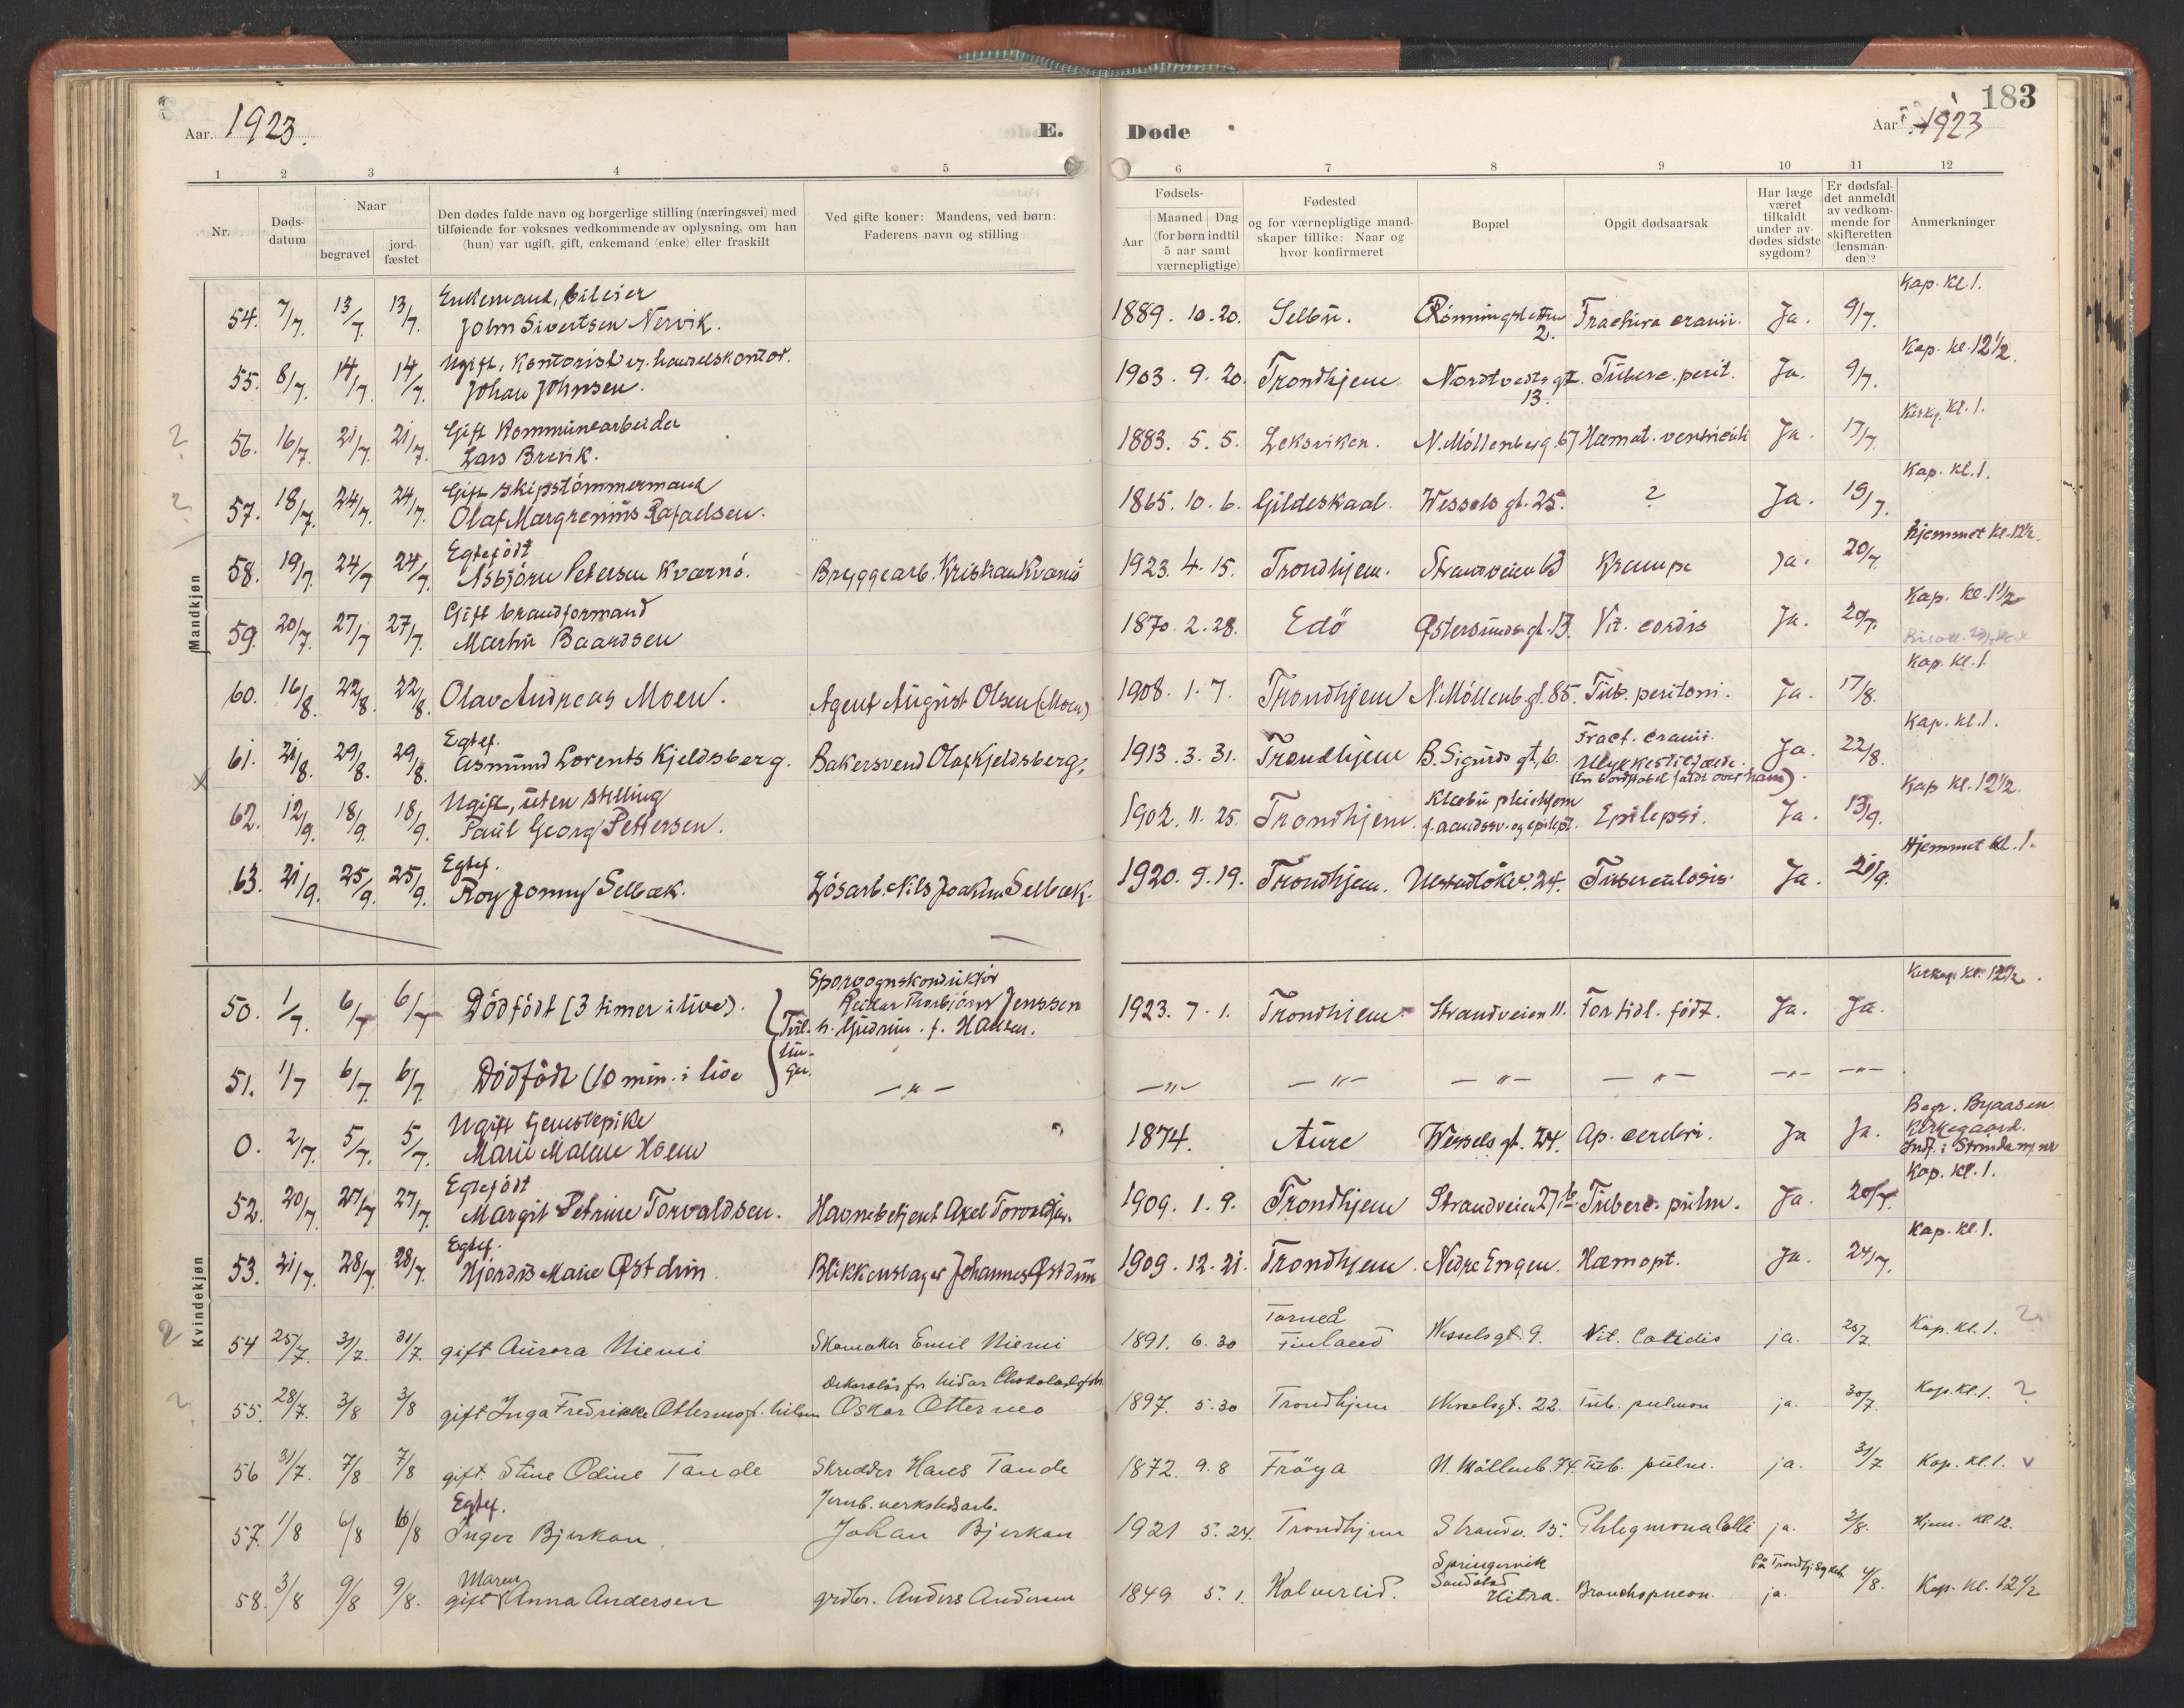 183
Aar 1923. E. Døde Aar 1923
1 2 3 4 5 6 7 8 9 10 11 12
Nr. Døds-datum Naar begravet jord-fæstet Den dødes fulde navn og borgerlige stilling (næringsvei) med tilføiende for voksnes vedkommende av oplysning, om han (hun) var ugift, gift, enkemand (enke) eller fraskilt Ved gifte koner: Mandens, ved børn: Faderens navn og stilling Fødsels- Aar Maaned Dag (for børn indtil 5 aar samt værnepligtige) Fødested og for værnepligtige mand-skaper tillike: Naar og hvor konfirmeret Bopæl Opgit dødsaarsak Har læge været tilkaldt under av-dødes sidste sygdom? Er dødsfal-det anmeldt av vedkom-mende for skifteretten (lensman-den)? Anmerkninger
Mandkjøn
Enkemand, bileier Kap. kl. 1.
54. 7/7. 13/7. 13/7. John Sivertsen Nervik. 1889. 10. 20. Selbu. Rönningsletten 2. Fractura cranii. Ja. 9/7.
Ugift, Kontorist v. handelskontor. Kap. kl. 12 1/2.
55. 8/7. 14/7. 14/7. Johan Johnsen. 1903. 9. 20. Trondhjem Nordtvedts gt. 13. Tuberc. perit. Ja. 9/7.
Gift Kommunearbeider kl. 1.
56. 16/7. 21/7. 21/7. Lars Brevik. 1883. 5. 5. Leksviken. N. Möllenberg. 67 Hæmat. ventriculi Ja. 17/7.
Gift skipstömmermand Kap. kl. 1.
57. 18/7. 24/7. 24/7. Olaf Margrenius Rafaelsen. 1865. 10. 6. Gildeskaal. Wessels gt. 25. ? Ja. 19/7.
Egtefödt Hjemmet kl. 12 1/2.
58. 19/7. 24/7 24/7. Asbjörn Petersen Kvernö. Bryggearb. Kristian Kvernö 1923. 4. 15. Trondhjem. Strandveien Krampe Ja. 20/7.
Gift brandformand Kap. kl. 1 1/2
59. 20/7. 27/7 27/7. Martin Baardsen 1870. 2. 28. Edö Østersunds gt. 13. Vit. cordis Ja. 20/7.
Kap. kl. 1.
60. 16/8. 22/8. 22/8. Olav Andreas Moen. Agent August Olsen (Moen) 1908. 1. 7. Trondhjem N. Möllenb. gt. 85. Tub. peritoni. Ja. 17/8.
Egtef. Fract. cranii. Kap. kl. 1.
61. 21/8. 29/8. 29/8. Asmund Lorents Kjeldsberg. Bakersvend Olaf Kjeldsberg. 1913. 3. 31. Trondhjem B. Sigurds gt. 6. Ulykkestilfælde. Ja. 22/8.
Ugift, uten stilling Klæbu pleiehjem Kap kl. 12 1/2.
62. 12/9. 18/9. 18/9. Paul Georg Pettersen. 1902. 11. 25. Trondhjem. f. aandssv. og epilept. Epilepsi. Ja. 13/9.
Egtef. Hjemmet kl. 1.
63. 21/9. 25/9. 25/9. Roy Jonny Selbæk. Lösarb. Nils Joakim Selbæk. 1920. 9. 19. Trondhjem. Ulstadlöke. 24. Tuberculosis. Ja. 21/9.
Kvindekjøn
Sporvognskonduktör
50. 1/7. 6/7 6/7 Dödfödt (3 timer i live). Reidar Thorbjörn Jenssen 1923. 7. 1. Trondhjem Strandveien 11. For tidl. födt. Ja. Ja.
Tvil-lin-ger. h. Gudrun f. Hansen.
51. 1/7 6/7. 6/7. Dödfödt (10 min. i live — " — — " — — " — — " — — " — — " — — " —
Ugift tjenestepike Begr. Byaasen Kirkegaard.
0. 2/7. 5/7. 5/7. Marie Malene Hoem 1874. Aure Wessels gt. 24. Ap. cerebri. Ja Ja. Indf. i Strinda m. nr
Egtefödt Kap. kl. 1.
52. 20/7. 27/7 27/7. Margit Petrine Torvaldsen. Havnebetjent Axel Torvaldsen. 1909. 1. 9. Trondhjem Strandveien 27 b. Tuberc. pulm. Ja. 20/7.
Egtef. Kap. kl. 1.
53. 21/7. 28/7 28/7. Hjördis Marie Østdun. Blikkenslager Johannes Østdun 1909. 12. 21. Trondhjem. Nedre Engen. Hæmopt. Ja. 24/7.
Torneå
54 25/7. 31/7. 31/7. gift Aurora Niemi Skomaker Emil Niemi 1891. 6. 30 Finland Wesselsgt. 9. Vit. Cordis ja. 25/7. Kap. kl. 1. ?
55. 28/7. 3/8 3/8 gift Inga Fredrikke Ottermo f. Nilsen Oskar Ottermo 1897. 5. 30 Trondhjem Wesselsgt. 22. Tub. pulmon ja. 30/7. Kap. kl. 1. ?
56 31/7. 7/8 7/8 gift. Stine Odine Tande Skredder Hans Tande 1872. 9. 8 Fröya N. Möllenb. 74. Tub. pulm. ja. 31/7 Kap. kl. 1. v
Egtef. Jernb. verkstedsarb.
57. 1/8 6/8 6/8 Inger Bjerkan. Johan Bjerkan 1921 5. 24. Trondhjem Strandv. 15. Phlegmona Colli ja. 2/8. Hjem. kl. 12.
Maren Springervik Sandstad På Trondhj. Sykeh.
58. 3/8 9/8 9/8. gift Anna Andersen grdbr. Anders Andersen 1849 5. 1. Kalvereid. Hitra. Bronchopneon. ja. 4/8. Kap. kl. 12 1/2